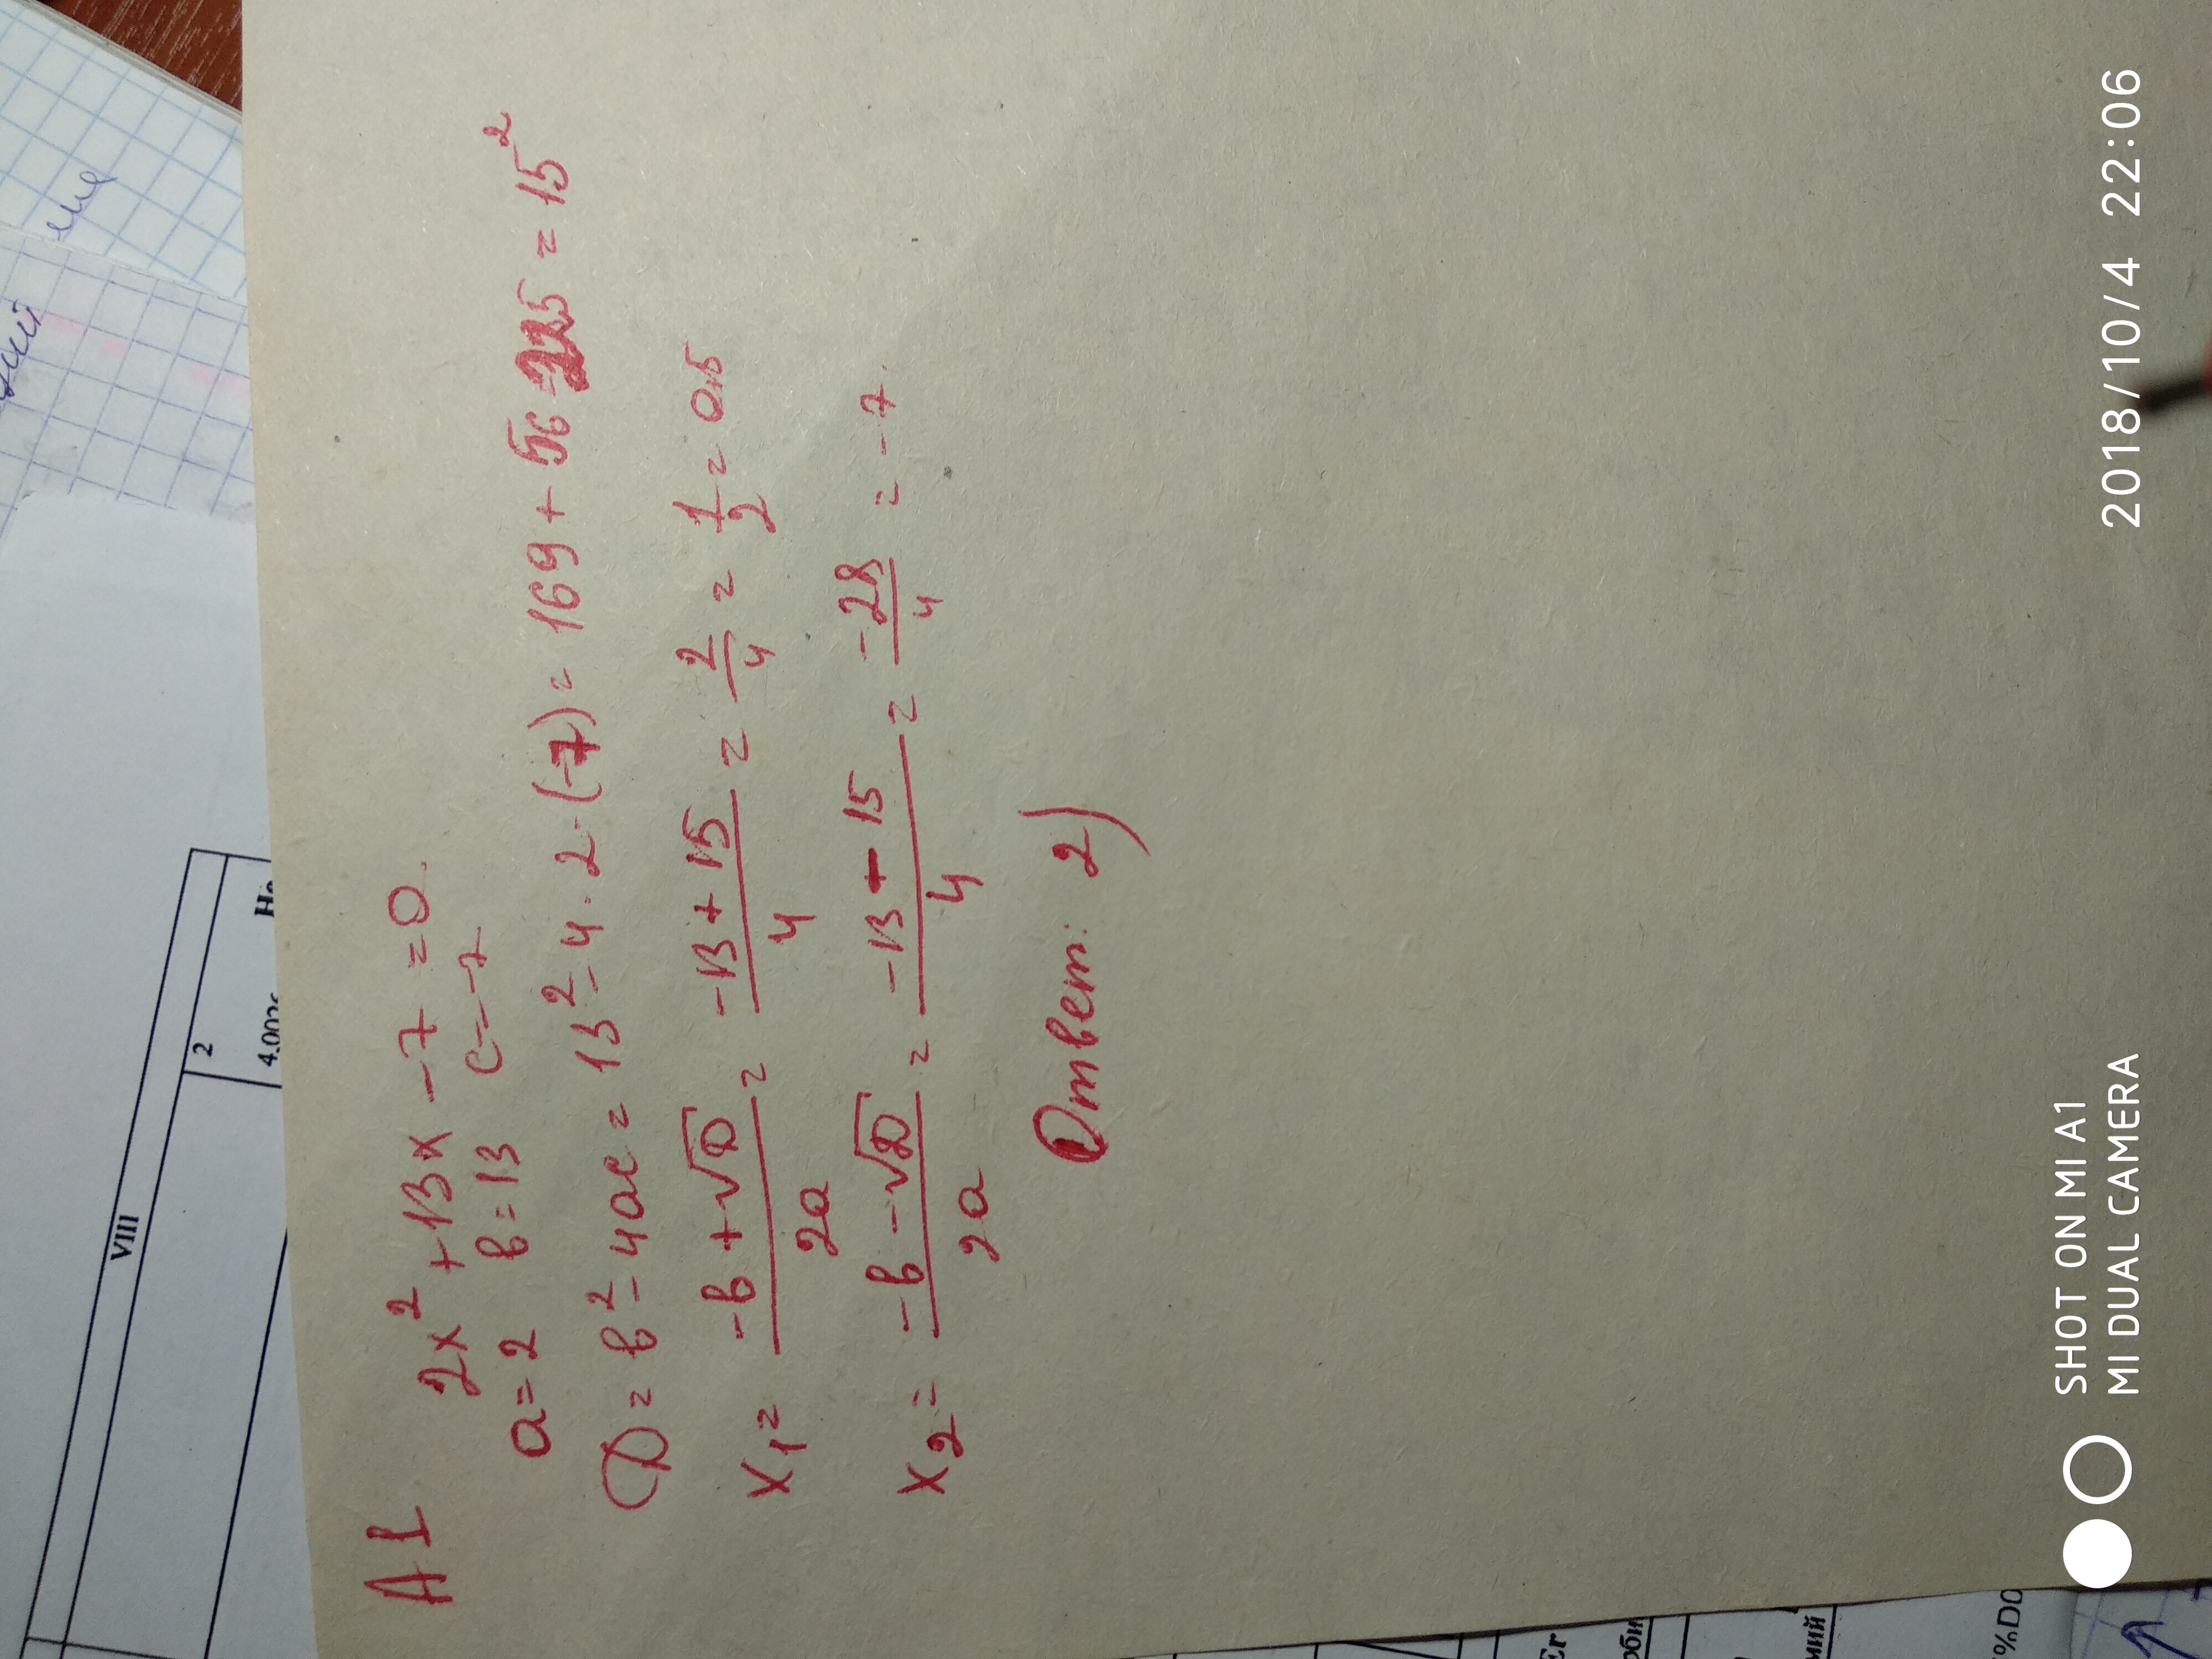 A1 2x² + 13x − 7 = 0.
a = 2 b = 13 c = −7
D = b² − 4ac = 13² − 4 · 2 · (−7) = 169 + 56 = 225 = 15²
x₁ = (−b + √D) / 2a = (−13 + 15) / 4 = 2/4 = 1/2 = 0,5
x₂ = (−b − √D) / 2a = (−13 − 15) / 4 = −28/4 = −7.
Ответ: 2)
VIII
2
He
SHOT ON MI A1
MI DUAL CAMERA
2018/10/4 22:06